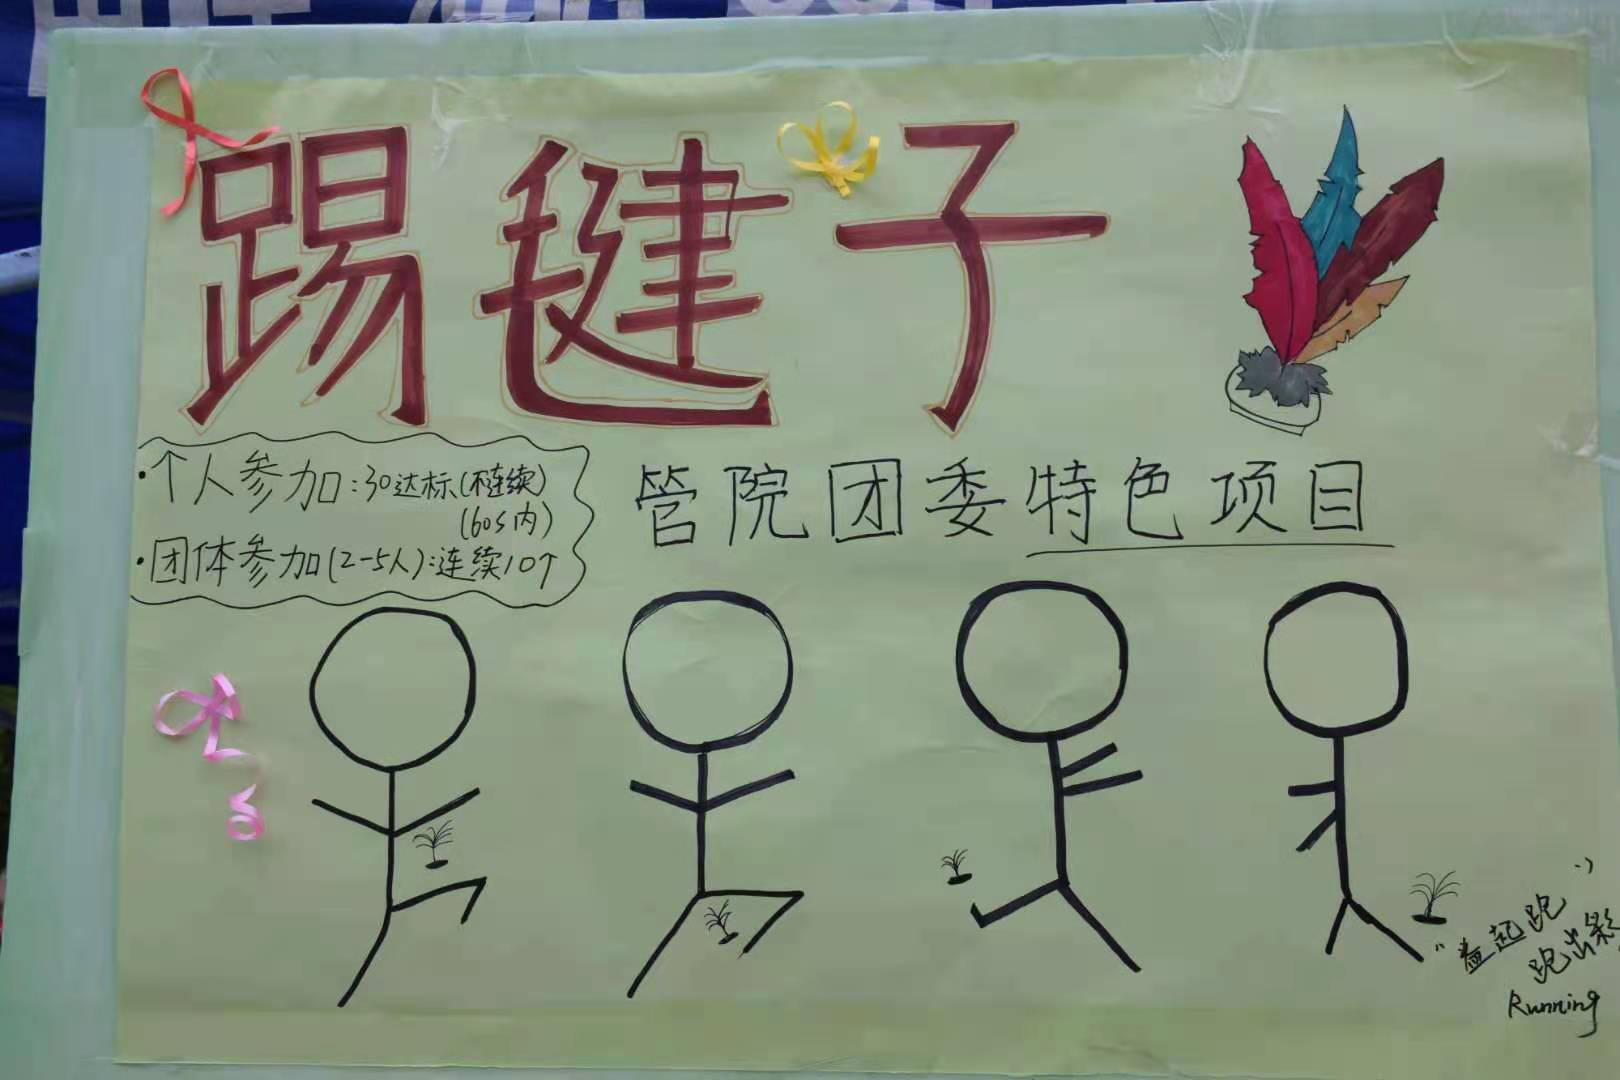 踢毽子
·个人参加:30达标(不连续)
(60s内)
·团体参加(2-5人):连续10个
管院团委特色项目
"益起跑
跑出彩
Running